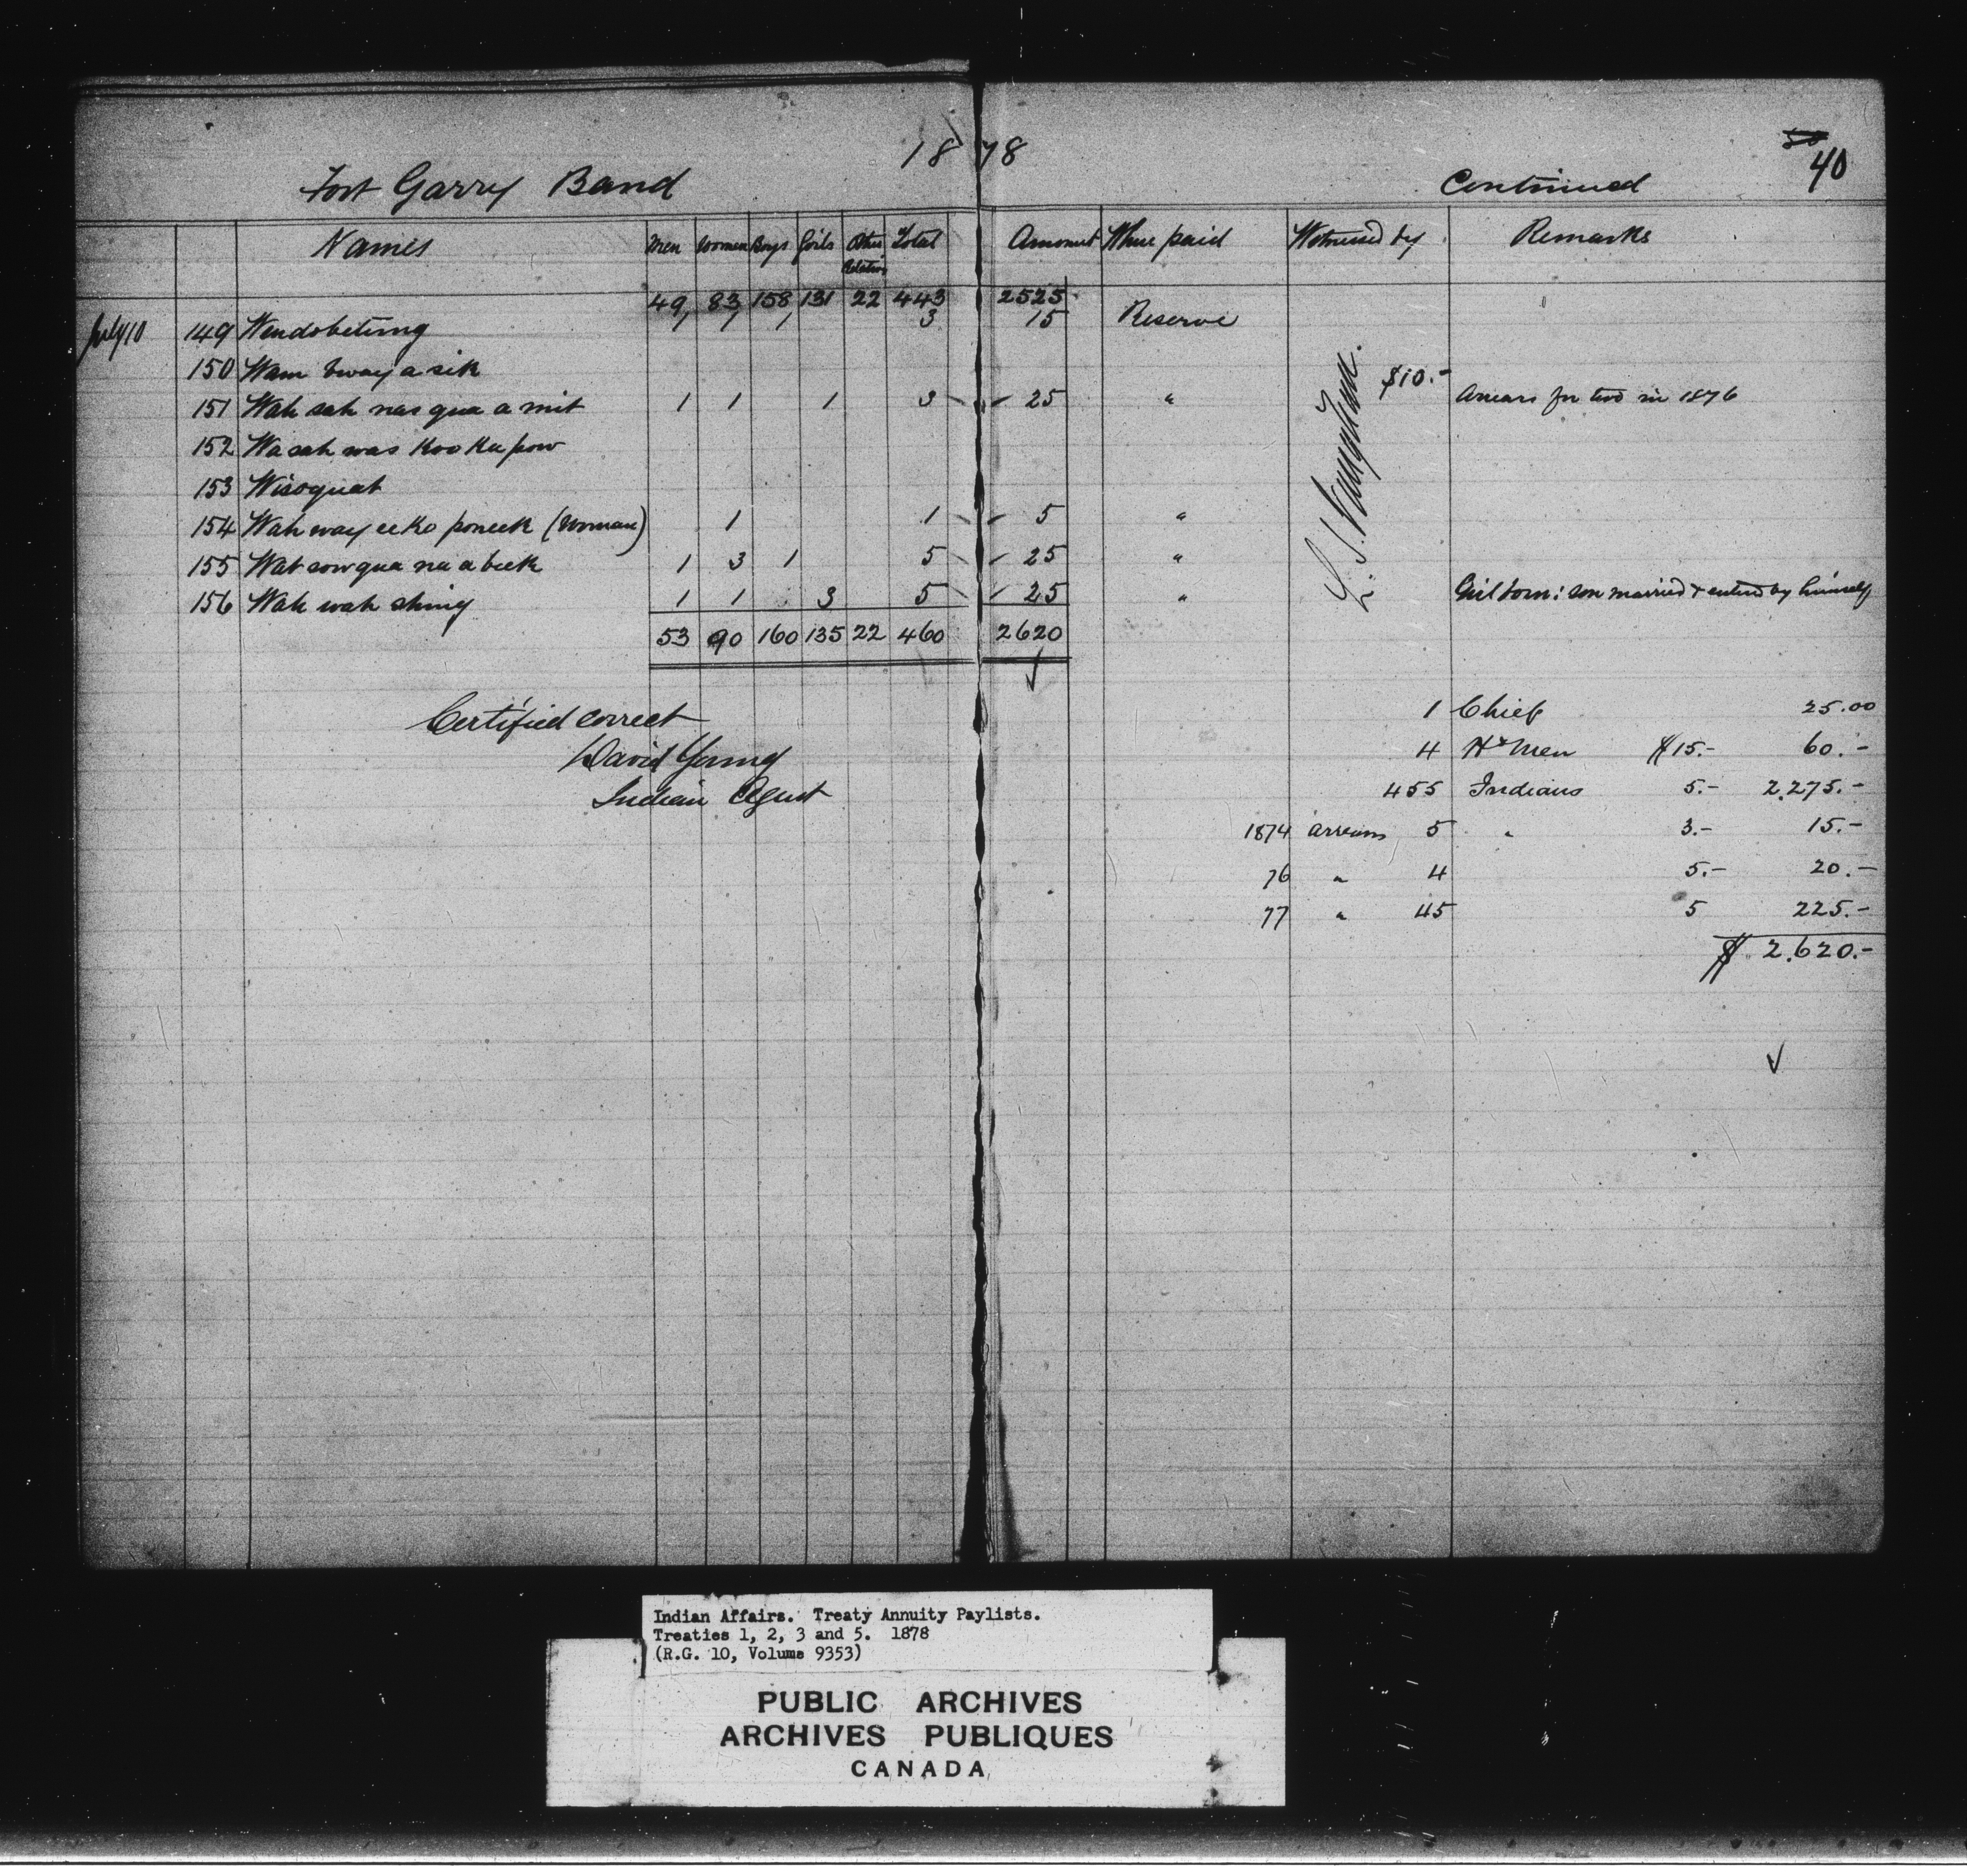 1878
50
40
Fort Garry Band Continued
Names Men Women Boys Girls Other Relatives Total Amount Where paid Witnessed by Remarks
49 83 158 131 22 443 2525
July 10 149 Wendobetung 1 1 1 3 15 Reserve
150 Wam bway a sik
151 Wah sah nas qua a mit 1 1 1 3 25 " $10.- Arrears for two in 1876
152 Wa sah was koo ka pow
153 Wisoquat
154 Wah way eeko poneek (Woman) 1 1 5 "
155 Wat sow qua na a beek 1 3 1 5 25 "
156 Wah wah shing 1 1 3 5 25 " Girl born: son married & entered by himself
53 90 160 135 22 460 2620
Certified correct
David Young
Indian Agent
1 Chief 25.00
4 Hd Men $15.- 60.-
455 Indians 5.- 2,275.-
1874 arrears 5 " 3.- 15.-
76 " 4 5.- 20.-
77 " 45 5 225.-
$ 2,620.-
Indian Affairs. Treaty Annuity Paylists.
Treaties 1, 2, 3 and 5. 1878
(R.G. 10, Volume 9353)
PUBLIC ARCHIVES
ARCHIVES PUBLIQUES
CANADA